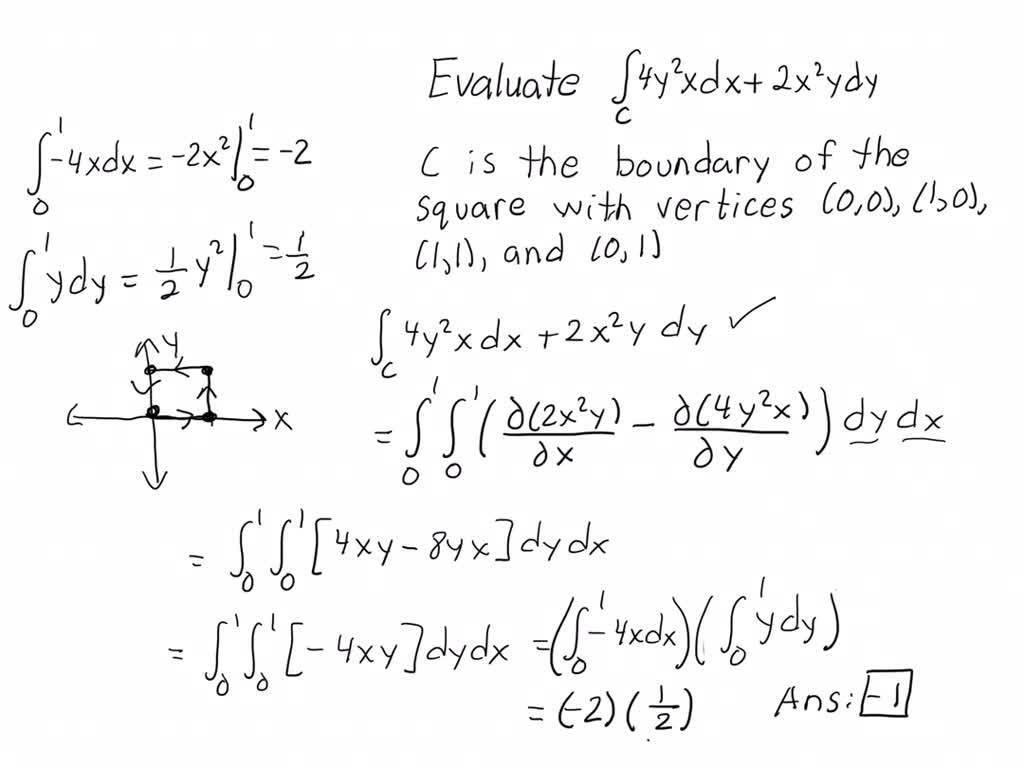 Evaluate ∫_C 4y²xdx + 2x²ydy
C is the boundary of the
square with vertices (0,0), (1,0),
(1,1), and (0,1)
∫_0^1 -4xdx = -2x²|_0^1 = -2
∫_0^1 ydy = 1/2 y²|_0^1 = 1/2
y
x
∫_C 4y²xdx + 2x²y dy ✓
= ∫_0^1 ∫_0^1 (∂(2x²y)/∂x - ∂(4y²x)/∂y) dy dx
= ∫_0^1 ∫_0^1 [4xy - 8yx] dydx
= ∫_0^1 ∫_0^1 [-4xy] dydx = (∫_0^1 -4xdx)(∫_0^1 ydy)
= (-2)(1/2)
Ans: -1